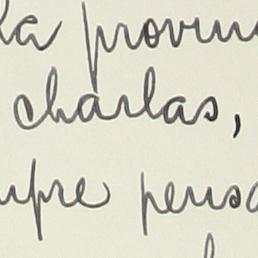 la provin
charlas,
mpre pensa